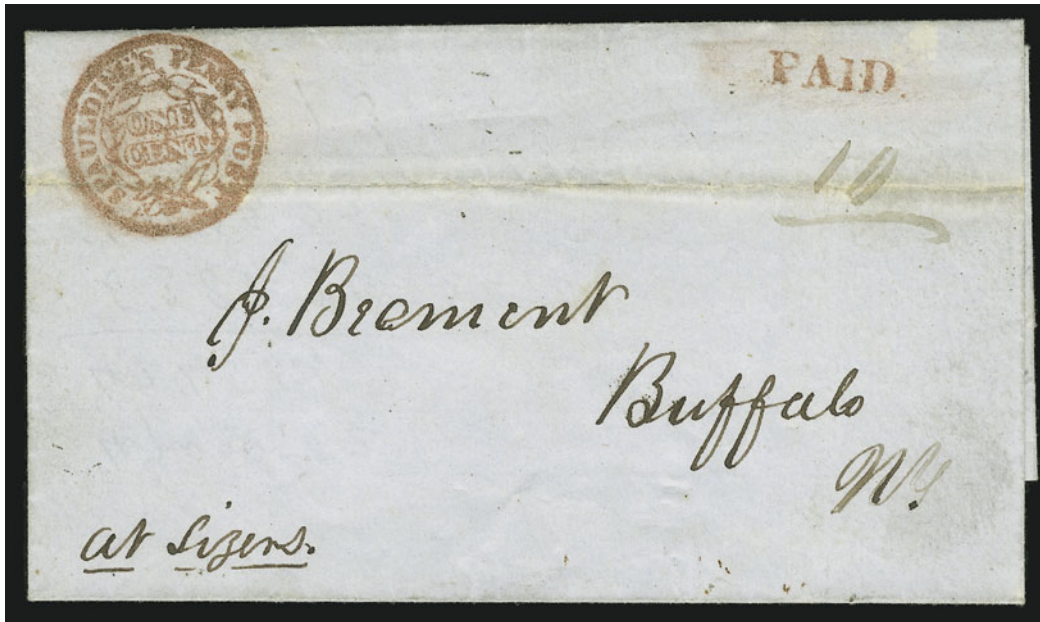 SPAULDING'S PENNY POST
ONE
CENT
PAID
10
J. Bremont
Buffalo
NY
at Sizers.